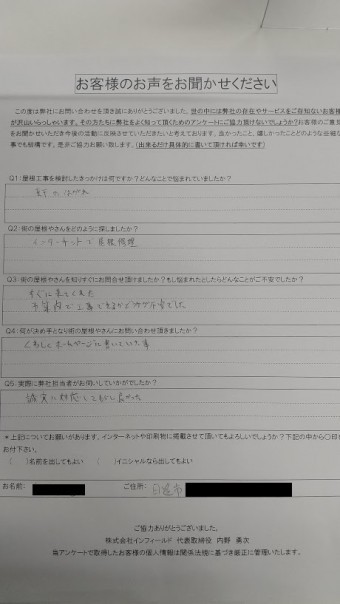 お客様のお声をお聞かせください
この度は弊社にお問い合わせを頂き誠にありがとうございました。世の中には弊社の存在やサービスをご存知ないお客様
が沢山いらっしゃいます。その方たちに弊社をよく知って頂くためのアンケートにご協力頂けないでしょうか?お客様のご意見
をお聞かせいただき今後の活動に反映させていただきたいと考えております。良かったこと、嬉しかったことどのような些細な
事でも結構です。是非ご協力お願い致します。(出来るだけ具体的に書いて頂ければ幸いです)
Q1:屋根工事を検討したきっかけは何ですか?どんなことで悩まれていましたか?
Q2:街の屋根やさんをどのように探しましたか?
インターネットで屋根修理
Q3:街の屋根やさんを知りすぐにお問合せ頂けましたか?もし悩まれたとしたらどんなことがご不安でしたか?
すぐに来てくれた
予算内で工事できるか不安でした
Q4:何が決め手となり街の屋根やさんにお問い合わせ頂きましたか?
くわしくホームページに書いていた事
Q5:実際に弊社担当者がお伺いしていかがでしたか?
誠実に対応してもらい良かった
*上記についてお願いがあります。インターネットや印刷物に掲載させて頂いてもよろしいでしょうか?下記の中から〇印を
お付下さい。
( )名前を出してもよい ( )イニシャルなら出してもよい
お名前: ご住所: 日進市
ご協力ありがとうございました。
株式会社インフィールド 代表取締役 内野 勇次
尚アンケートで取得したお客様の個人情報は関係法規に基づき厳正に管理いたします。